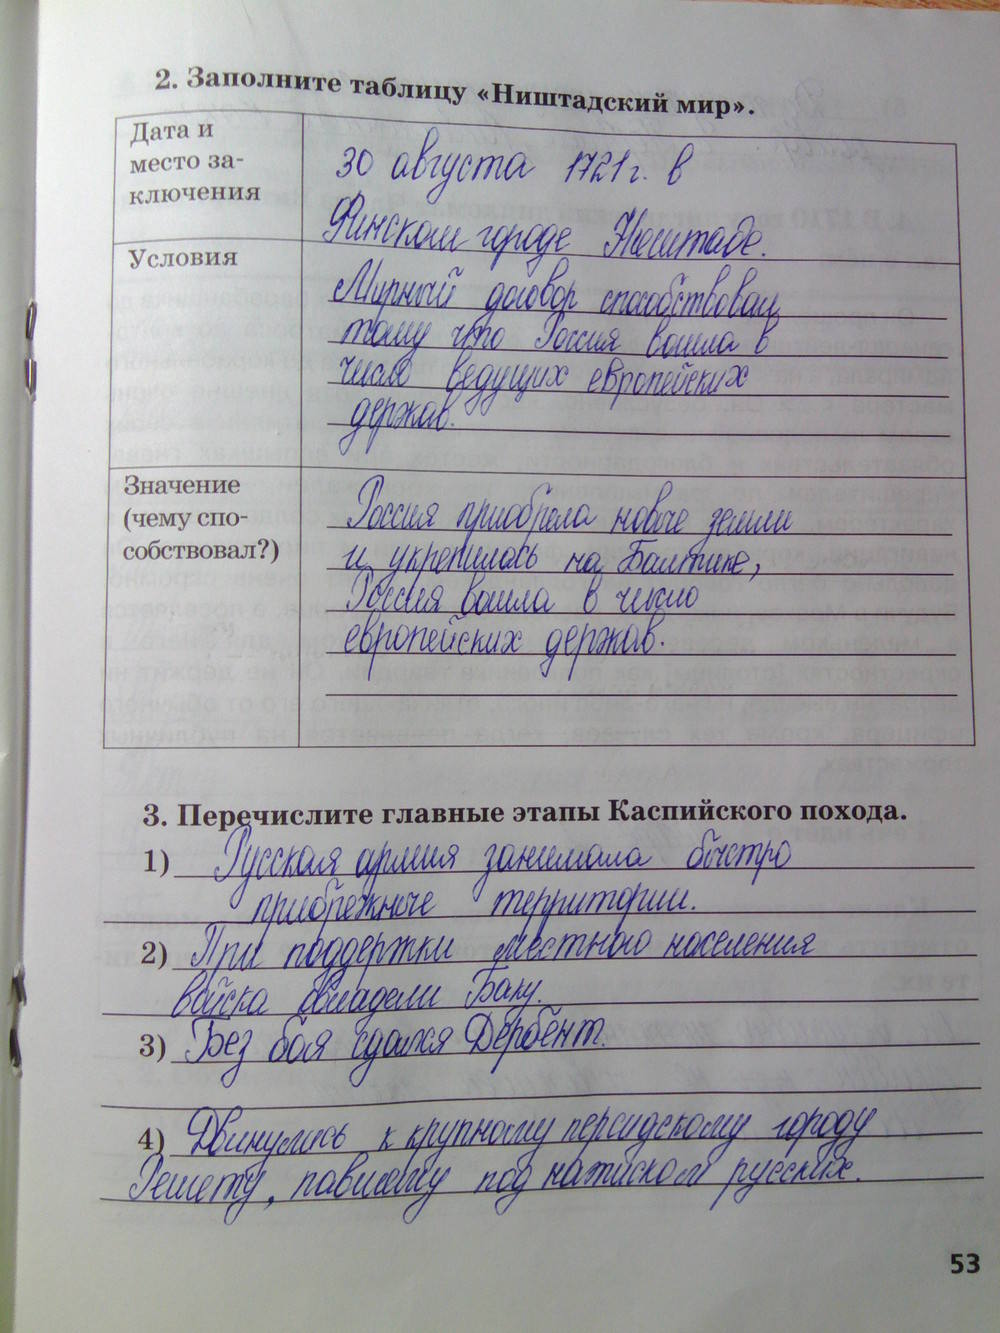 2. Заполните таблицу «Ништадский мир».
Дата и
место за-
ключения
30 августа 1721 г. в
Финском городе Ништаде.
Условия
Мирный договор способствовал
тому что Россия вошла в
число ведущих европейских
держав.
Значение
(чему спо-
собствовал?)
Россия приобрела новые земли
и укрепилась на Балтике,
Россия вошла в число
европейских держав.
3. Перечислите главные этапы Каспийского похода.
1) Русская армия занимала быстро
прибрежные территории.
2) При поддержки местного населения
войска овладели Баку.
3) Без боя сдался Дербент.
4) Двинулись к крупному персидскому городу
Решету, павшему под натиском русских.
53